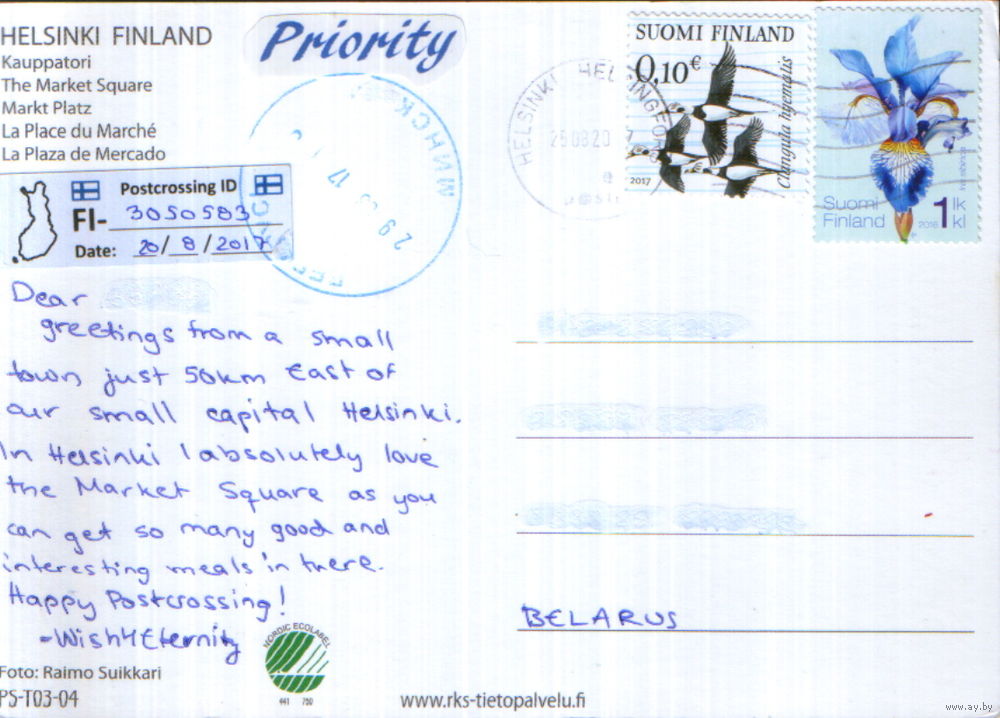 HELSINKI FINLAND
Kauppatori
The Market Square
Markt Platz
La Place du Marché
La Plaza de Mercado
Priority
Postcrossing ID
FI- 3050583
Date: 20/8/2017
HELSINKI HELSINGFORS
SUOMI FINLAND
0,10€
Clangula hyemalis
2017
Suomi
Finland
2016
1 lk
kl
МИНСК
29
17
Dear
greetings from a small
town just 50km East of
our small capital Helsinki.
In Helsinki I absolutely love
the Market Square as you
can get so many good and
interesting meals in there.
Happy Postcrossing!
-Wish4Eternity
BELARUS
NORDIC ECOLABEL
441 750
Foto: Raimo Suikkari
PS-T03-04
www.rks-tietopalvelu.fi
www.ay.by